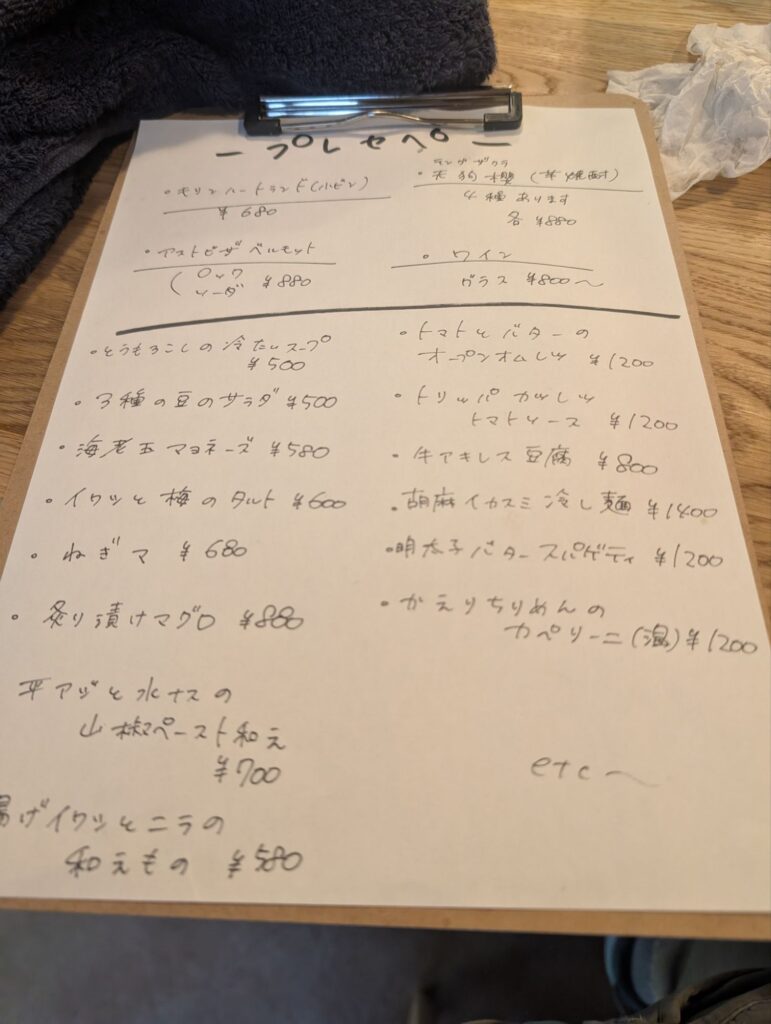 ー プレセペ ー
・キリンハートランド(小ビン)
¥680
・アストピザ ベルモット
( ロック
ソーダ ¥880
テングザクラ
・天狗櫻 (芋焼酎)
4種あります
各 ¥880
・ワイン
グラス ¥800〜
・とうもろこしの冷たいスープ
¥500
・3種の豆のサラダ ¥500
・海老玉マヨネーズ ¥580
・イワシと梅のタルト ¥600
・ねぎマ ¥680
・炙り漬けマグロ ¥880
平アジと水ナスの
山椒ペースト和え
¥700
揚げイワシとニラの
和えもの ¥580
・トマトとバターの
オープンオムレツ ¥1200
・トリッパ カツレツ
トマトソース ¥1200
・牛アキレス豆腐 ¥800
・胡麻イカスミ冷し麺 ¥1400
・明太子バタースパゲティ ¥1200
・かえりちりめんの
カペリーニ(温) ¥1200
etc〜